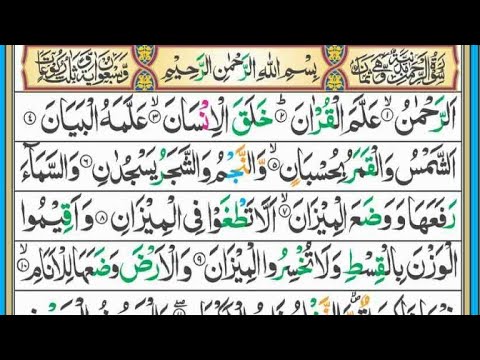 بِسْمِ اللهِ الرَّحْمٰنِ الرَّحِيْمِ
اَلرَّحْمٰنُ ۙ﴿۱﴾ عَلَّمَ الْقُرْاٰنَ ؕ﴿۲﴾ خَلَقَ الْاِنْسَانَ ۙ﴿۳﴾ عَلَّمَهُ الْبَيَانَ ﴿۴﴾
اَلشَّمْسُ وَالْقَمَرُ بِحُسْبَانٍ ۪﴿۵﴾ وَّالنَّجْمُ وَالشَّجَرُ يَسْجُدٰنِ ﴿۶﴾ وَالسَّمَآءَ
رَفَعَهَا وَوَضَعَ الْمِيْزَانَ ۙ﴿۷﴾ اَلَّا تَطْغَوْا فِى الْمِيْزَانِ ﴿۸﴾ وَاَقِيْمُوا
الْوَزْنَ بِالْقِسْطِ وَلَا تُخْسِرُوا الْمِيْزَانَ ﴿۹﴾ وَالْاَرْضَ وَضَعَهَا لِلْاَنَامِ ۙ﴿۱۰﴾